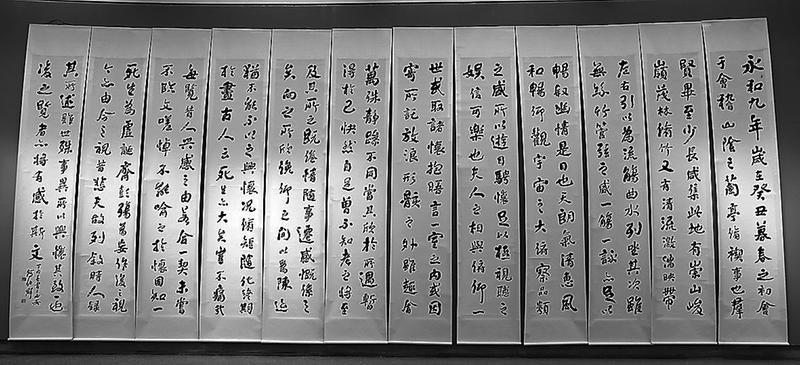 永和九年歲在癸丑暮春之初會
于會稽山陰之蘭亭脩禊事也群
賢畢至少長咸集此地有崇山峻
嶺茂林脩竹又有清流激湍映帶
左右引以為流觴曲水列坐其次雖
無絲竹管弦之盛一觴一詠亦足以
暢叙幽情是日也天朗氣清惠風
和暢仰觀宇宙之大俯察品類
之盛所以遊目騁懷足以極視聽之
娛信可樂也夫人之相與俯仰一
世或取諸懷抱晤言一室之內或因
寄所託放浪形骸之外雖趣舍
萬殊靜躁不同當其欣於所遇暫
得於己快然自足曾不知老之將至
及其所之既倦情隨事遷感慨係之
矣向之所欣俛仰之間以為陳迹
猶不能不以之興懷況脩短隨化終期
於盡古人云死生亦大矣豈不痛哉
每覽昔人興感之由若合一契未嘗
不臨文嗟悼不能喻之於懷固知一
死生為虛誕齊彭殤為妄作後之視
今亦由今之視昔悲夫故列敘時人錄
其所述雖世殊事異所以興懷其致一也
後之覽者亦將有感於斯文